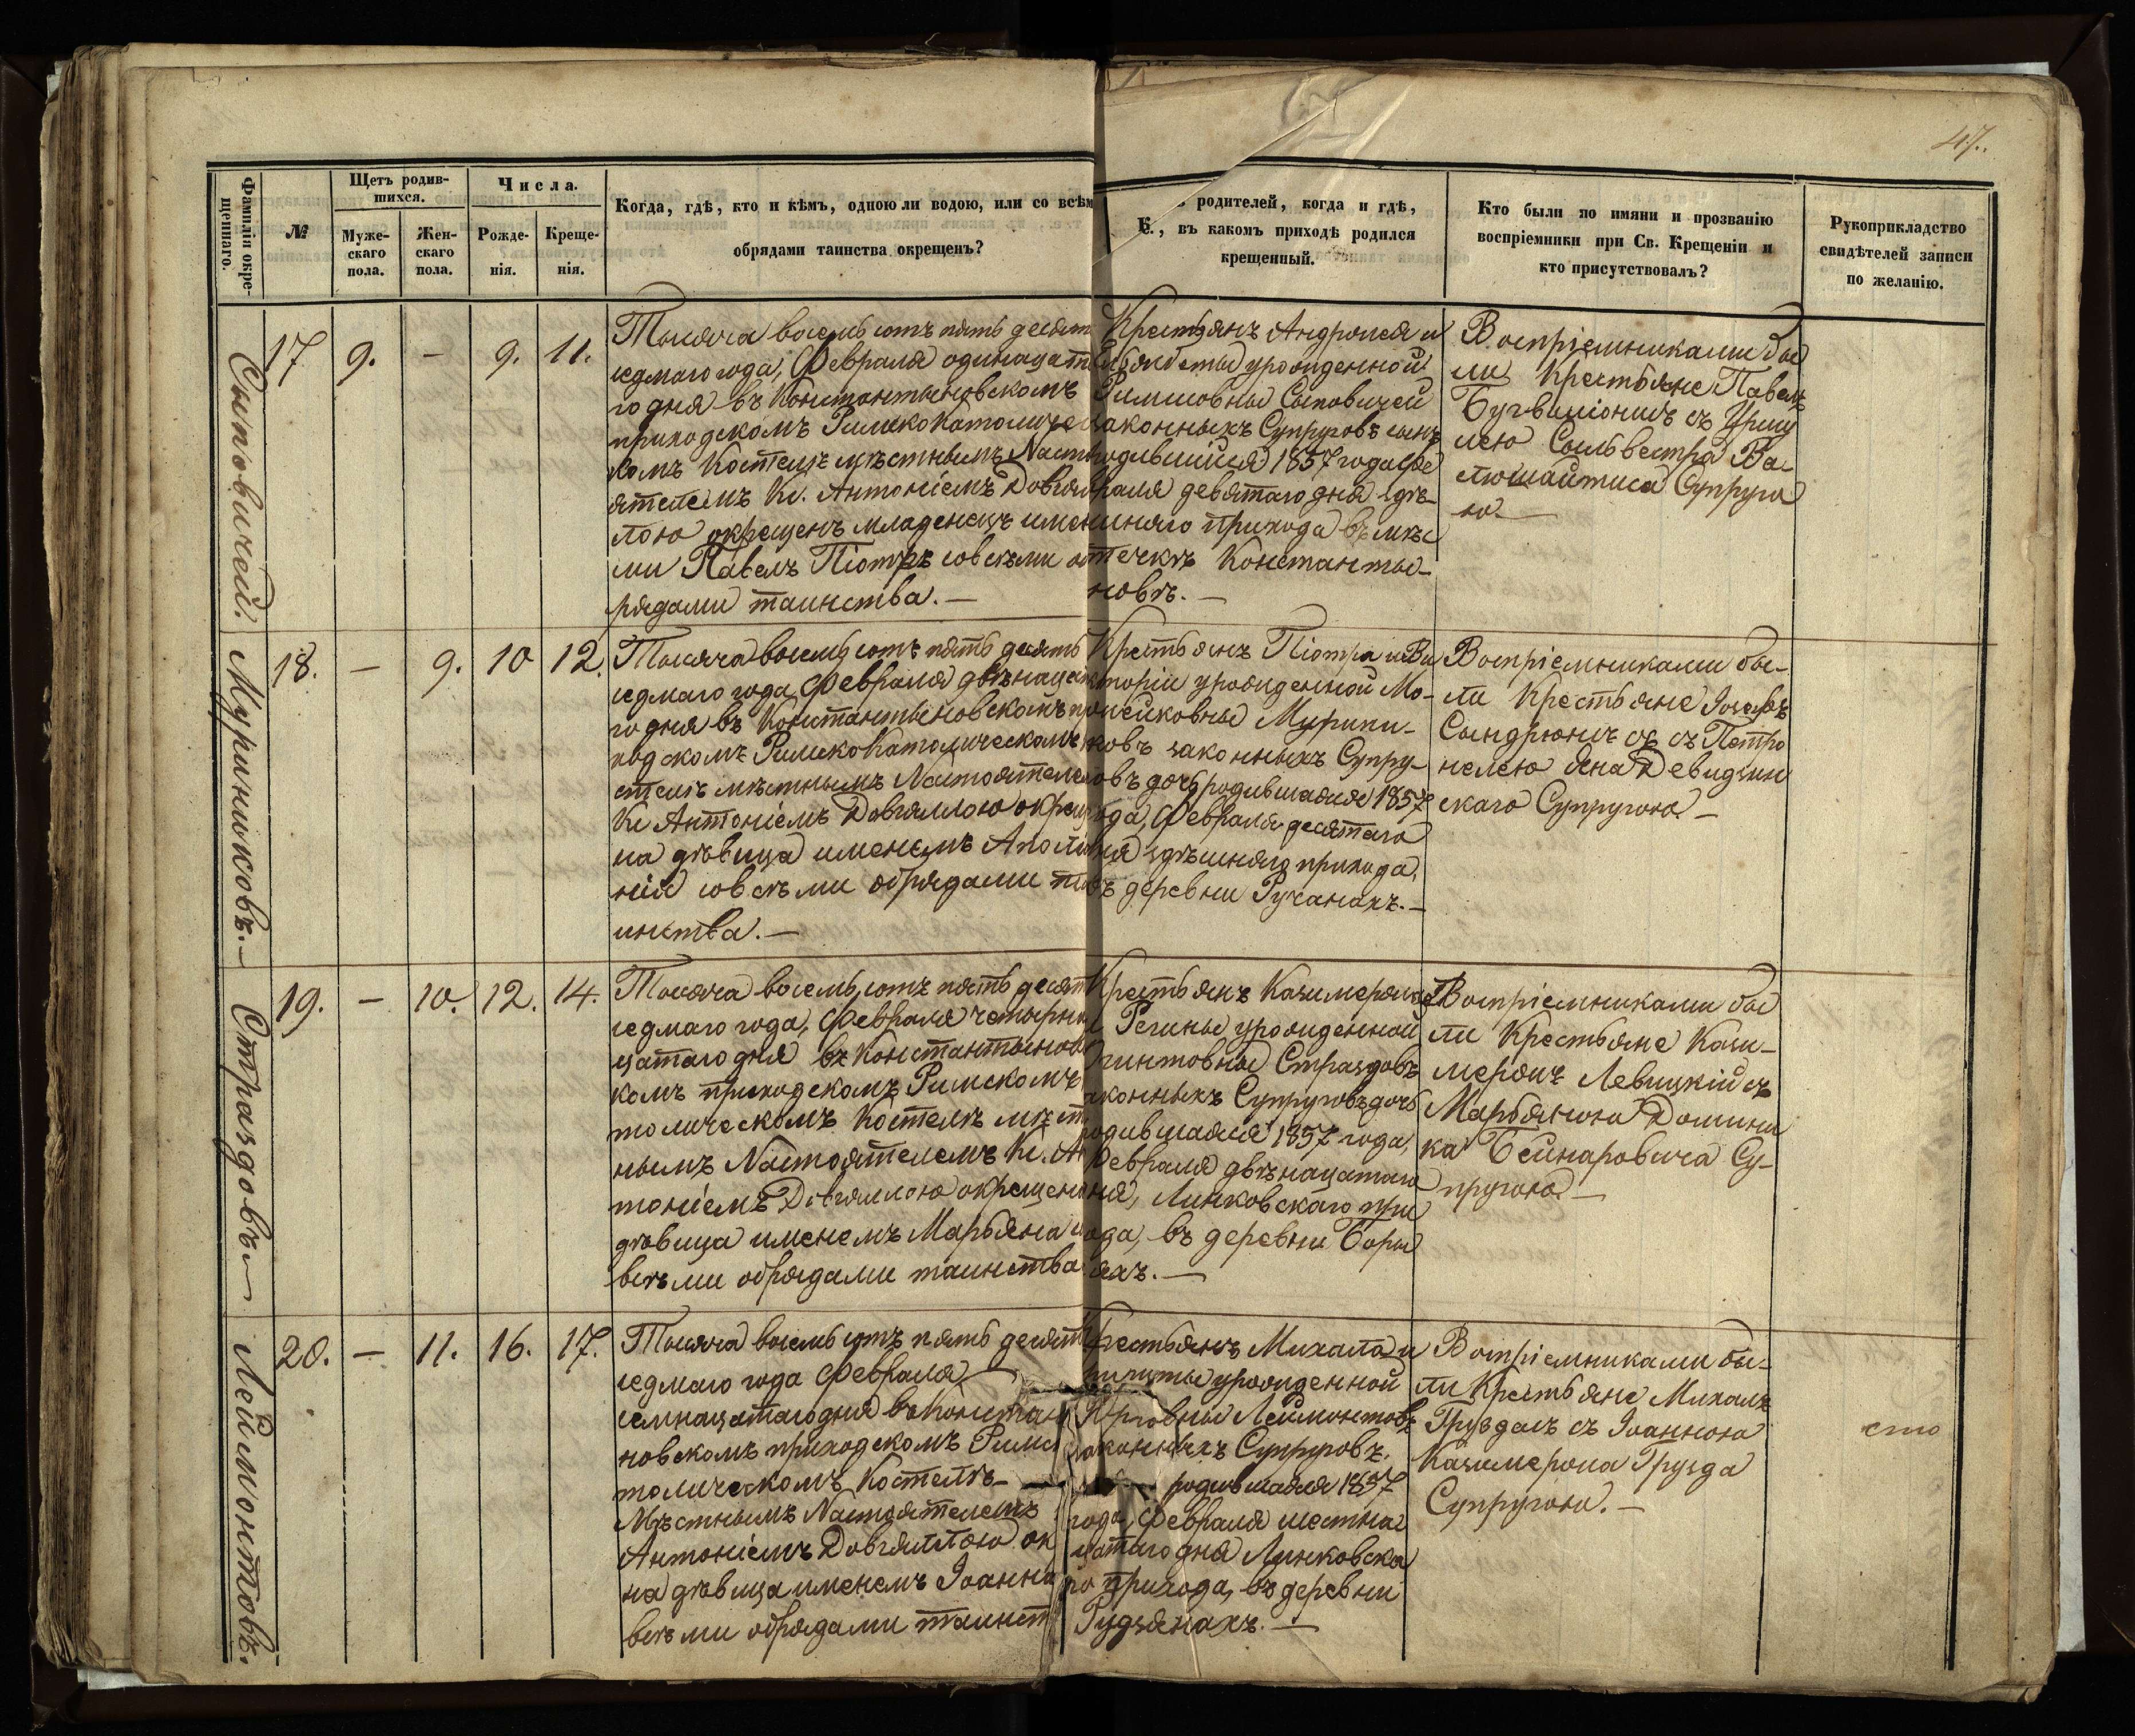 47.
Фамиліи окре-
щеннаго.
№
Щетъ родив-
шихся.
Муже-
скаго
пола.
Жен-
скаго
пола.
Числа.
Рожде-
нія.
Креще-
нія.
Когда, гдѣ, кто и кѣмъ, одною ли водою, или со всѣм
обрядами таинства окрещенъ?
родителей, когда и гдѣ,
въ какомъ приходѣ родился
крещенный.
Кто были по имяни и прозванію
воспріемники при Св. Крещеніи и
кто присутствовалъ?
Рукоприкладство
свидѣтелей записи
по желанію.
Сыповичей.
17
9.
—
9.
11.
Тысяча восемь сотъ пять десят
седмаго года, Февраля одинацат
го дня въ Константыновскомъ
приходскомъ Римско Католичес
комъ Костелѣ мѣстнымъ Насто
ятелемъ Кс. Антоніемъ Довгял
лою окрещенъ младенецъ имен
ми Павелъ Піотръ со всѣми об
рядами таинства.—
Крестьянъ Андрожея и
Ельжбеты урожденной
Римшовны Сыповичей
законныхъ Супруговъ сынъ
родившійся 1857 года Фе
враля девятаго дня здѣ-
шняго прихода въ мѣс
течкѣ Константы-
новѣ.—
Воспріемниками бы
ли Крестьяне Павелъ
съ Уршу
лею Сыльвестра Ва-
Супруго
ю—
Муринюковъ.—
18.
—
9.
10
12.
Тысяча восемь сотъ пять десять
седмаго года, Февраля двѣнацат
го дня въ Константыновскомъ при
ходскомъ Римско Католическомъ Ко
стелѣ мѣстнымъ Настоятелем
Кс Антоніемъ Довгяллою окреще
на дѣвица именемъ Аполи
нія со всѣми обрядами та
инства.—
Крестьянъ Піотра и Ви
кторіи урожденной Мо-
Мурини-
ковъ законныхъ Супру-
говъ дочь родившаяся 1857
года, Февраля десятаго
дня здѣшняго прихода,
въ деревни Ручанахъ.—
Воспріемниками бы-
ли Крестьяне Іосефъ
Сындрюнисъ съ Петро
нелею Яна Девидзин
скаго Супругою—
Страздовъ—
19.
—
10.
12.
14.
Тысяча восемь сотъ пять десят
седмаго года, Февраля четырна
цатаго дня въ Константынов
комъ приходскомъ Римском
толическомъ Костелѣ мѣст
нымъ Настоятелемъ Кс. Ан
тоніемъ Довгяллою окрещена
дѣвица именемъ Марьяна
всѣми обрядами таинства
Крестьянъ Казимержа
Регины урожденной
Гинтовны Страздовъ
законныхъ Супруговъ дочь
родившаяся 1857 года,
Февраля двѣнацатаго
дня, Линковскаго при
хода, въ деревни Боры
яхъ.—
Воспріемниками бы
ли Крестьяне Кази-
мержъ Левицкій съ
Марьяною Домини
ка Бейнаровича Су-
пругою—
Леймонтовъ.
20.
—
11.
16.
17.
Тысяча восемь сотъ пять десят
седмаго года Февраля—
семнацатаго дня въ Констан
новскомъ приходскомъ Римс
толическомъ Костелѣ—
Мѣстнымъ Настоятелемъ
Антоніемъ Довгяллою ок
на дѣвица именемъ Іоанна
всѣми обрядами таинст
Крестьянъ Михала и
урожденной
Юрговны Леймонтовъ
законныхъ Супруговъ.
родившаяся 1857
года, Февраля шестна
цатаго дня Линковска
го прихода, въ деревни
Гудзянахъ.—
Воспріемниками бы-
ли Крестьяне Михалъ
Груздасъ съ Іоанною
Казимержа Грузда
Супругою.—